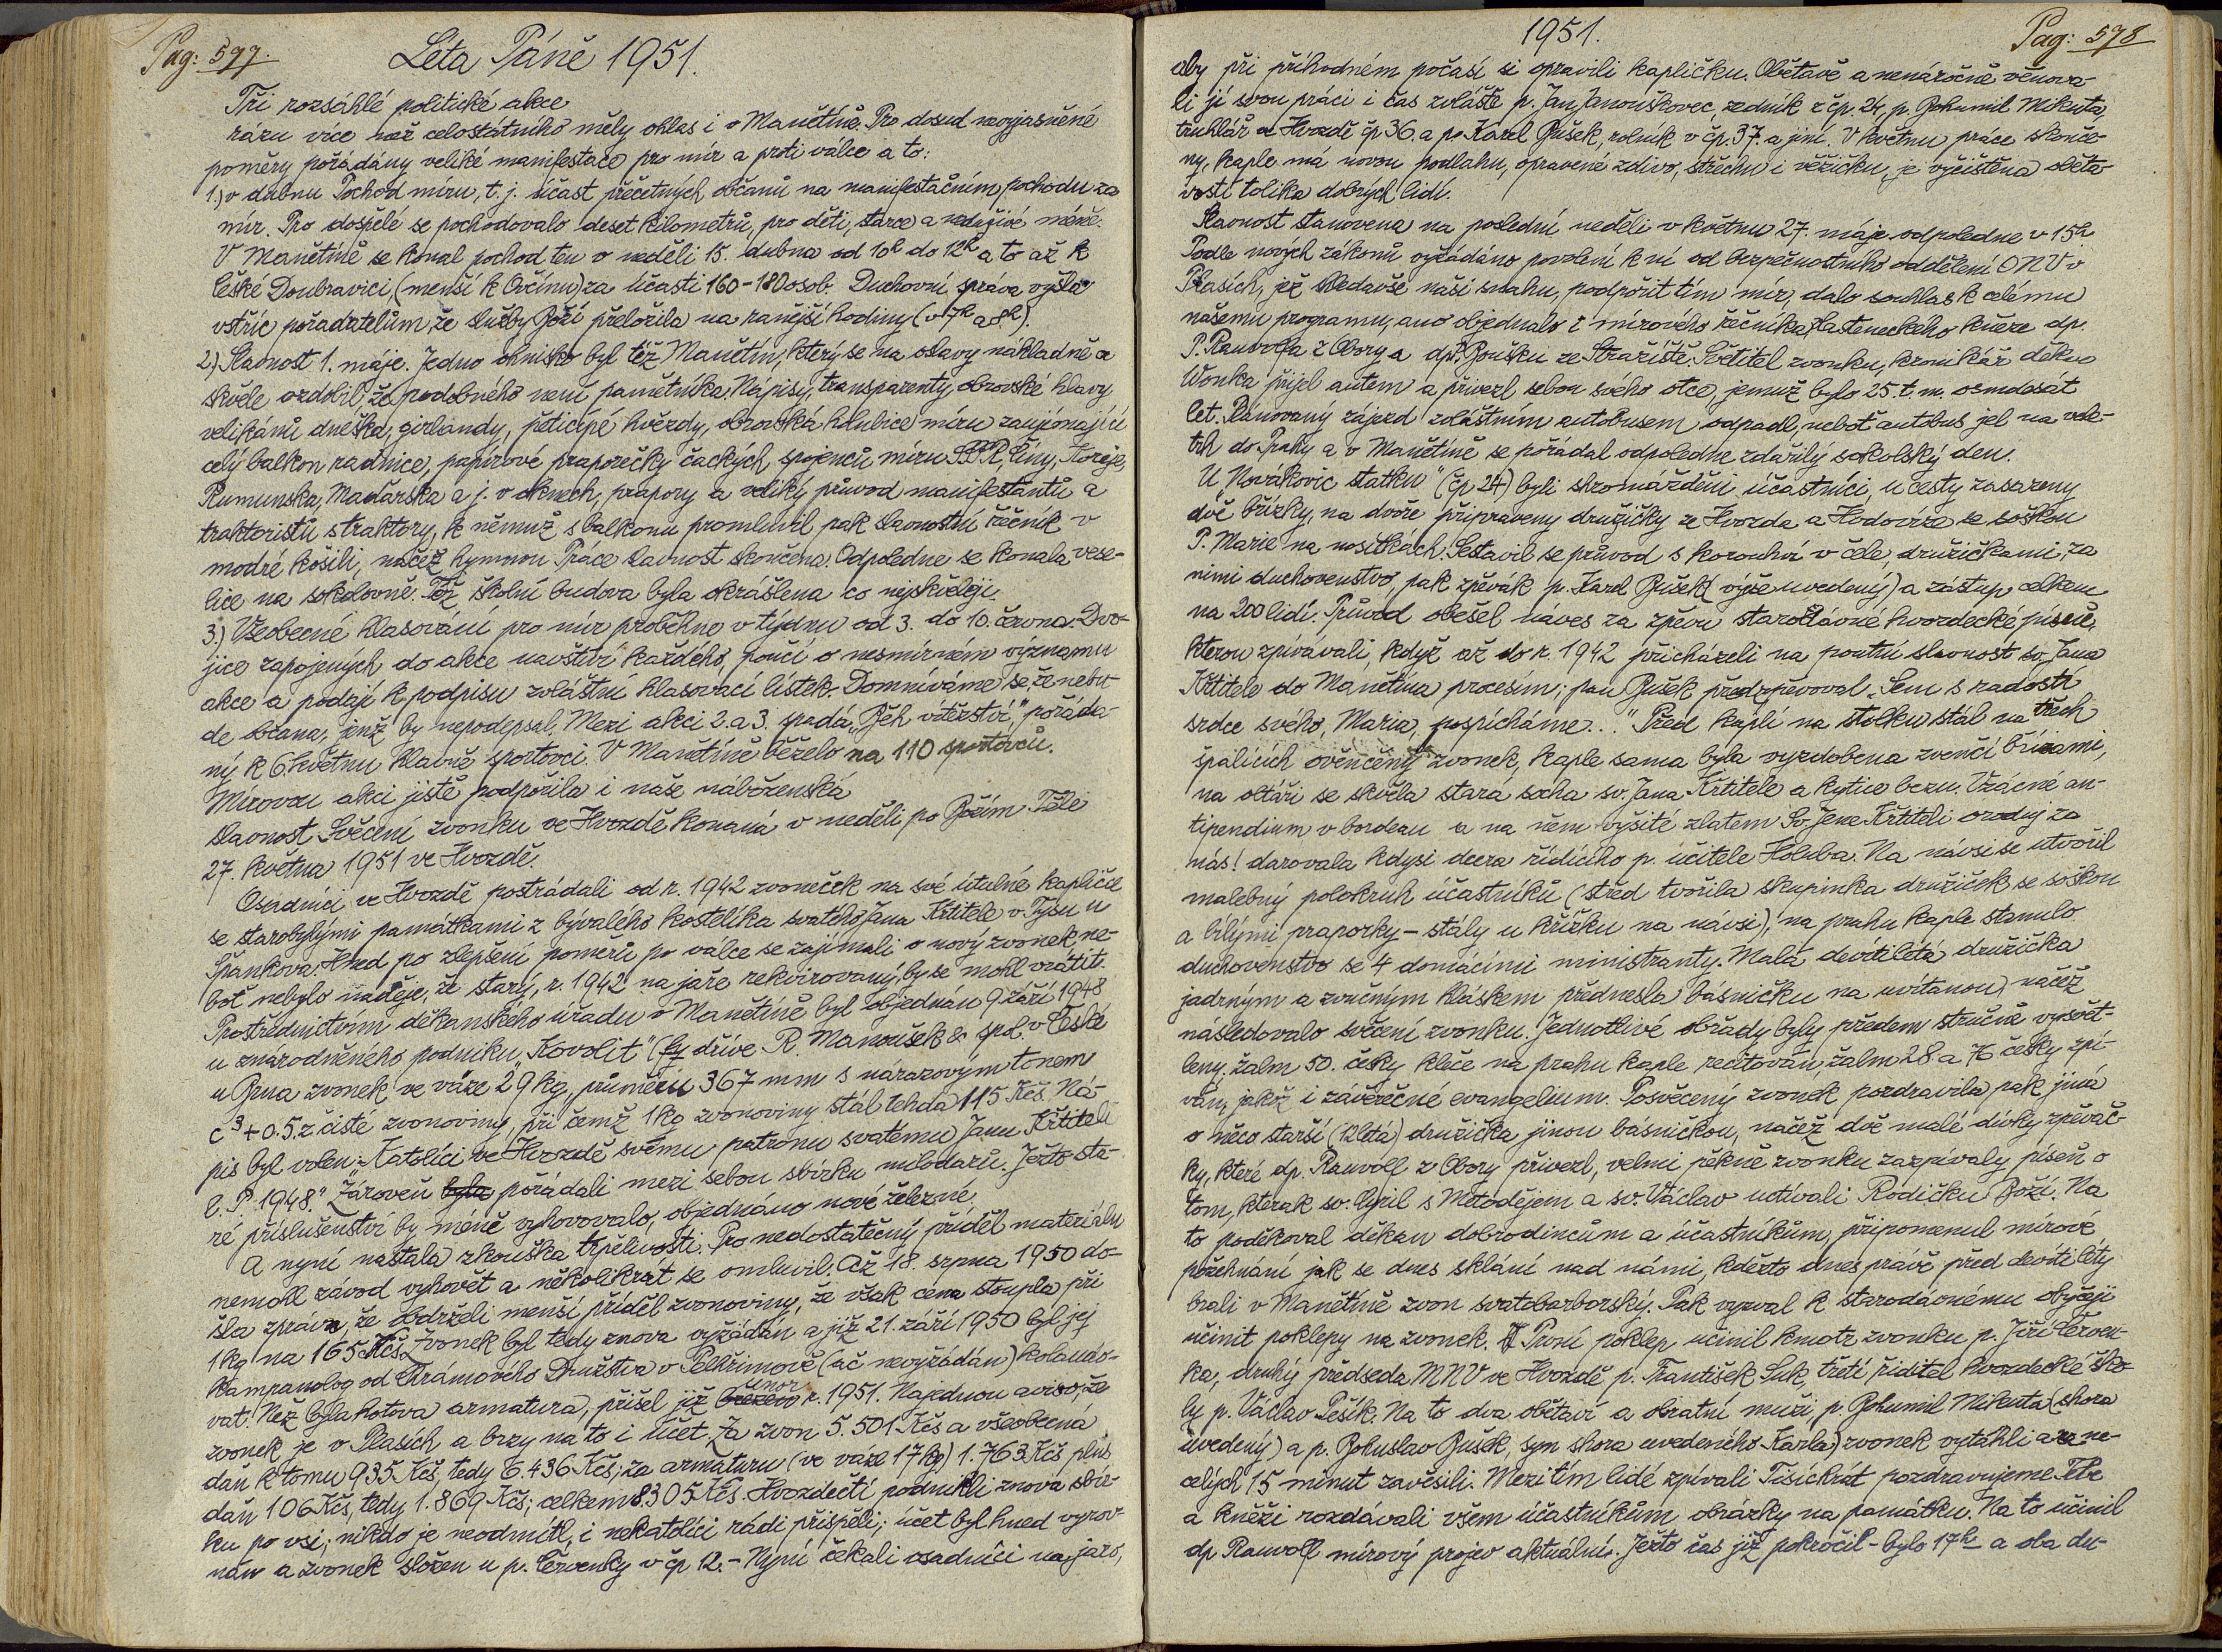 Pag: 577.
Léta Páně 1951.
Tři rozsáhlé politické akce
rázu více než celostátního měly ohlas i v Manětíně. Pro dosud nevyjasněné
poměry pořádány veliké manifestace pro mír a proti válce a to:
1.) v dubnu Pochod míru, t. j. účast přečetných občanů na manifestačním pochodu za
mír. Pro dospělé se pochodovalo deset kilometrů, pro děti, starce a neduživé méně.
V Manětíně se konal pochod ten v neděli 15. dubna od 10h do 12h a to až k
České Doubravici, (menší k Ovčínu) za účasti 160-180 osob. Duchovní správa vyšla
vstříc pořadatelům, že služby Boží přeložila na ranější hodiny (v 7h a 8h).
2.) Slavnost 1. máje. Jedno ohnisko byl též Manětín, který se na oslavy nákladně a
skvěle ozdobil, že podobného není pamětníka. Nápisy, transparenty, obrovské hlavy
velikánů dneška, girlandy, pěticípé hvězdy, obrovská holubice míru zaujímající
celý balkon radnice, papírové praporečky čackých spojenců míru SSSR, Číny, Koreje,
Rumunska, Maďarska a j. v oknech, prapory a veliký průvod manifestantů a
traktoristů s traktory, k němuž s balkonu promluvil pak slavnostní řečník v
modré košili, načež hymnou Práce slavnost skončena. Odpoledne se konala vese-
lice na sokolovně. Též školní budova byla okrášlena co nejskvěleji.
3.) Všeobecné hlasování pro mír proběhne v týdnu od 3. do 10. června. Dvo-
jice zapojených do akce navštíví každého, poučí o nesmírném významu
akce a podají k podpisu zvláštní hlasovací lístek. Domníváme se, že nebu-
de občana, jenž by nepodepsal. Mezi akci 2. a 3. spadá „Běh vítězství," pořáda-
ný k 6 květnu hlavně sportovci. V Manětíně běželo na 110 sportovců.
Mírovou akci jistě podpořila i naše náboženská
slavnost Svěcení zvonku ve Hvozdě konaná v neděli po Božím Těle
27. května 1951 ve Hvozdě.
Osadníci ve Hvozdě postrádali od r. 1942 zvoneček na své útulné kapličce
se starobylými památkami z bývalého kostelíka svatého Jana Křtitele v Tysu u
Špankova. Hned po zlepšení poměrů po válce se zajímali o nový zvonek, ne-
boť nebylo naděje, že starý, r. 1942 na jaře rekvirovaný, by se mohl vrátit.
Prostřednictvím děkanského úřadu v Manětíně byl objednán 9 září 1948
u znárodněného podniku „Kovolit" (fy dříve R. Manoušek & spol. v České
u Brna zvonek ve váze 29 kg, průměru 367 mm s nárazovým tonem
c3 + 0.5. z čisté zvonoviny, při čemž 1 kg zvonoviny stál tehda 115 Kčs. Ná-
pis byl volen: „Katolíci ve Hvozdě svému patronu svatému Janu Křtiteli
l. P. 1948." Zároveň byla pořádali mezi sebou sbírku milodarů. Ježto sta-
ré příslušenství by méně vyhovovalo, objednáno nové železné.
A nyní nastala zkouška trpělivosti. Pro nedostatečný příděl materiálu
nemohl závod vyhovět a několikrát se omluvil. Až 18. srpna 1950 do-
šla zpráva, že obdrželi menší příděl zvonoviny, že však cena stoupla při
1 kg na 165 Kčs. Zvonek byl tedy znova vyžádán a již 21. září 1950 byl jej
kampanolog od Chrámového Družstva v Pelhřimově (ač nevyžádán) kolaudo-
vat. Než byla hotova armatura, přišel již březen únor r. 1951. Najednou aviso, že
zvonek je v Plasích a brzy na to i účet. Za zvon 5.501 Kčs a všeobecná
daň k tomu 935 Kčs, tedy 6.436 Kčs; za armaturu (ve váze 17 kg) 1.763 Kčs plus
daň 106 Kčs, tedy 1.869 Kčs; celkem 8.305 Kčs. Hvozdečtí podnikli znova sbír-
ku po vsi; nikdo je neodmítl, i nekatolíci rádi přispěli; účet byl hned vyrov-
nán a zvonek složen u p. Červenky v čp 12. - Nyní čekali osadníci na jaro,
1951.
Pag: 578
aby při příhodném počasí si opravili kapličku. Obětavě a nenáročně věnova-
li jí svou práci i čas zvláště p. Jan Janouškovec, zedník z čp. 24, p. Bohumil Mikuta,
truhlář ve Hvozdě čp 36. a p. Karel Bušek, rolník v čp. 37. a jiní. V květnu práce skonče-
ny, kaple má novou podlahu, opravené zdivo, střechu i věžičku, je vyčištěna oběta-
vostí tolika dobrých lidí.
Slavnost stanovena na poslední neděli v květnu 27. máje odpoledne v 15h.
Podle nových zákonů vyžádáno povolení k ní od bezpečnostního oddělení ONV v
Plasích, jež shledavše naši snahu, podpořit tím mír, dalo souhlas k celému
našemu programu, ano objednalo i mírového řečníka vlasteneckého kněze dp.
P. Rauvolfa z Obory a dp. Boušku ze Stražiště. Světitel zvonku, kronikář děkan
Wonka přijel autem a přivezl sebou svého otce, jemuž bylo 25. t. m. osmdesát
let. Plánovaný zájezd zvláštním autobusem odpadl, neboť autobus jel na vele-
trh do Prahy a v Manětíně se pořádal odpoledne zdařilý sokolský den.
U „Novákovic statku" (čp 24) byli shromážděni účastníci, u cesty zasazeny
dvě břízky, na dvoře připraveny družičky ze Hvozda a Hodovíze se soškou
P. Marie na nosítkách. Sestavil se průvod s korouhví v čele, družičkami, za
nimi duchovenstvo, pak zpěvák p. Karel Bušek (výše uvedený) a zástup celkem
na 200 lidí. Průvod obešel náves za zpěvu staroslavné hvozdecké písně,
kterou zpívávali, když až do r. 1942 přicházeli na poutní slavnost sv. Jana
Křtitele do Manětína procesím; pan Bušek předzpěvoval „Sem s radostí
srdce svého, Maria, pospícháme..." Před kaplí na stolku stál na třech
špalících ověnčený zvonek, kaple sama byla vyzdobena zvenčí břízami,
na oltáři se skvěla stará socha sv. Jana Křtitele a kytice bezu. Vzácné an-
tipendium v bordeau a na něm vyšité zlatem Sv. Jene Křtiteli oroduj za
nás! darovala kdysi dcera řídícího p. učitele Holuba. Na návsi se utvořil
malebný polokruh účastníků (střed tvořila skupinka družiček se soškou
a bílými praporky - stály u křížku na návsi), na prahu kaple stanulo
duchovenstvo se 4 domácími ministranty. Malá devítiletá družička
jadrným a zvučným hláskem přednesla básničku na uvítanou, načež
následovalo svěcení zvonku. Jednotlivé obřady byly předem stručně vysvět-
leny. Žalm 50. česky kleče na prahu kaple recitován, žalm 28. a 76 česky zpí-
ván, jakož i závěrečné evangelium. Posvěcený zvonek pozdravila pak jiná
o něco starší (12letá) družička jinou básničkou, načež dvě malé dívky zpěvač-
ky, které dp. Rauvolf z Obory přivezl, velmi pěkně zvonku zazpívaly píseň o
tom, kterak sv. Cyril s Metodějem a sv. Václav uctívali Rodičku Boží. Na
to poděkoval děkan dobrodincům a účastníkům, připomenul mírové
požehnání jak se dnes sklání nad námi, kdežto dnes právě před devíti léty
brali v Manětíně zvon svatobarborský. Pak vyzval k starodávnému obyčeji
učinit poklepy na zvonek. První poklep učinil kmotr zvonku p. Jiří Červen-
ka, druhý předseda MNV ve Hvozdě p. František Suk, třetí řiditel hvozdecké ško-
ly p. Václav Pešík. Na to dva obětaví a obratní muži, p Bohumil Mikuta (shora
uvedený) a p. Bohuslav Bušek, syn shora uvedeného Karla) zvonek vytáhli a za ne-
celých 15 minut zavěsili. Mezitím lidé zpívali Tisíckrát pozdravujeme Tebe
a kněží rozdávali všem účastníkům obrázky na památku. Na to učinil
dp Rauvolf mírový projev aktuální. Ježto čas již pokročil - bylo 17h a oba du-